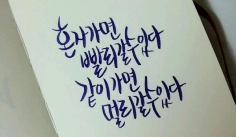 혼자가면
빨리갈수있다
같이가면
멀리갈수있다